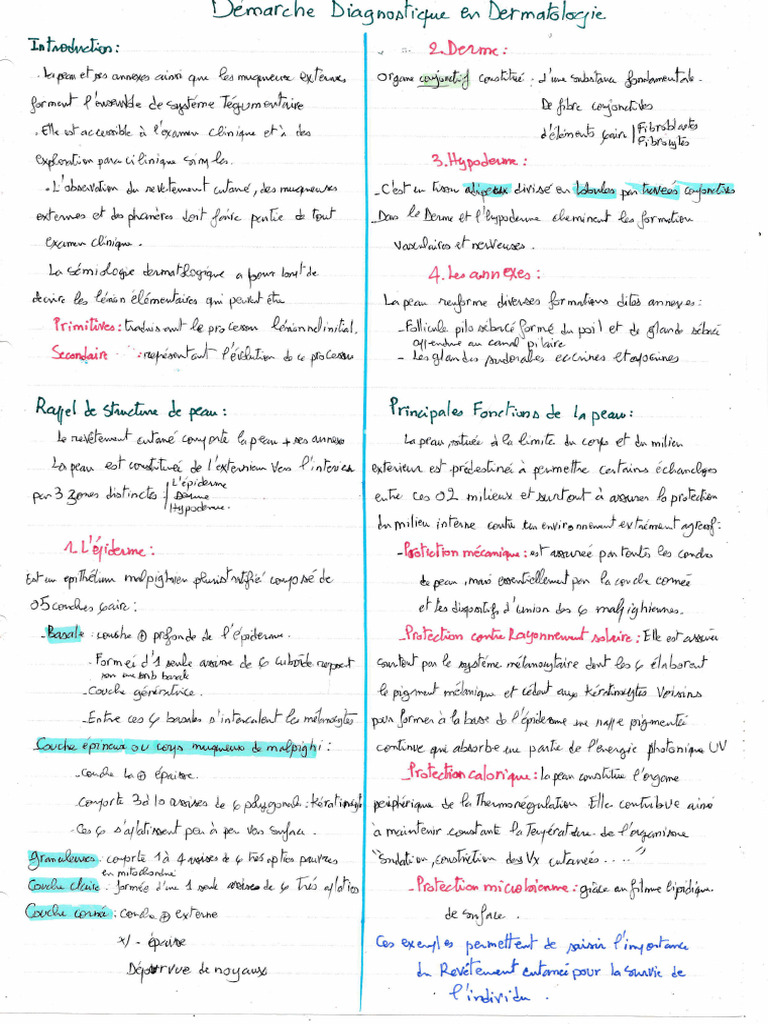 Démarche Diagnostique en Dermatologie
Introduction :
. La peau et ses annexes ainsi que les muqueuses externes
forment l'ensemble de système Tégumentaire
. Elle est accessible à l'examen clinique et à des
exploration paraclinique simples.
- L'observation du revêtement cutané, des muqueuses
externes et des phanères doit faire partie de tout
examen clinique.
La sémiologie dermatologique a pour but de
décrire les lésion élémentaires qui peuvent être
Primitives : traduisant le processus lésionnel initial.
Secondaire : représentant l'évolution de ce processus
Rappel de structure de peau :
Le revêtement cutané comporte la peau + ses annexes
La peau est constituée de l'extérieur vers l'intérieur
par 3 zones distinctes | L'épiderme
Derme
Hypoderme.
1. L'épiderme :
Est un epithélium malpighien pluristratifié composé de
05 couches :
- Basale : couche ⊕ profonde de l'épiderme.
- Formée d'1 seule assise de ¢ cuboïde reposant
sur une mb basale
- Couche génératrice.
- Entre ces ¢ basales s'intercalent les mélanocytes
Couche épineux ou corps muqueux de malpighi :
- couche la ⊕ épaisse.
- comporte 3 à 10 assises de ¢ polygonale : kératinocyte
- Ces ¢ s'aplatissent peu à peu vers surface.
granuleuses : comporte 1 à 4 assises de ¢ très aplaties pauvres
en mitochondrie
Couche claire : formée d'une 1 seule assises de ¢ Très aplaties
Couche cornée : couche ⊕ externe
+/- épaisse
Dépourvue de noyaux
2. Derme :
Organe conjonctif constitué : d'une substance fondamentale.
De fibre conjonctives
d'éléments | Fibroblastes
Fibrocytes
3. Hypoderme :
- C'est un tissu adipeux divisé en lobules par travées conjonctives
- Dans le Derme et l'hypoderme cheminent les formation
vasculaires et nerveuses.
4. Les annexes :
La peau renferme diverses formations dites annexes :
- Follicule pilo sébacé formé du poil et de glande sébacé
appendue au canal pilaire
- Les glandes sudorales eccrines et apocrines
Principales Fonctions de La peau :
La peau, située à la limite du corps et du milieu
exterieur est prédestiné à permettre certains échanges
entre ces 02 milieux et surtout à assurer la protection
du milieu interne contre un environnement extrêment agressif :
- Protection mécanique : est assurée par toutes les couches
de peau, mais essentiellement par la couche cornée
et les dispositifs d'union des ¢ malpighiennes.
- Protection contre Rayonnement solaire : Elle est assurée
surtout par le système mélanocytaire dont les ¢ élaborent
le pigment mélanique et cèdent aux Kératinocytes Voisins
pour former à la base de l'épiderme une nappe pigmentée
continue qui absorbe une partie de l'énergie photonique UV
- Protection calorique : la peau constitue l'organe
periphérique de la Thermorégulation Elle contribue ainsi
à maintenir constante la Température de l'organisme
"Sudation, constriction des Vx cutanées...."
- Protection microbienne : grâce au filme lipidique
de surface.
Ces exemples permettent de saisir l'importance
du Revêtement cutané pour la survie de
l'individu.